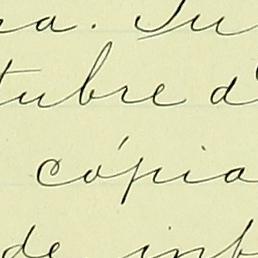 ra. Su
tubre d
cópia
de inf